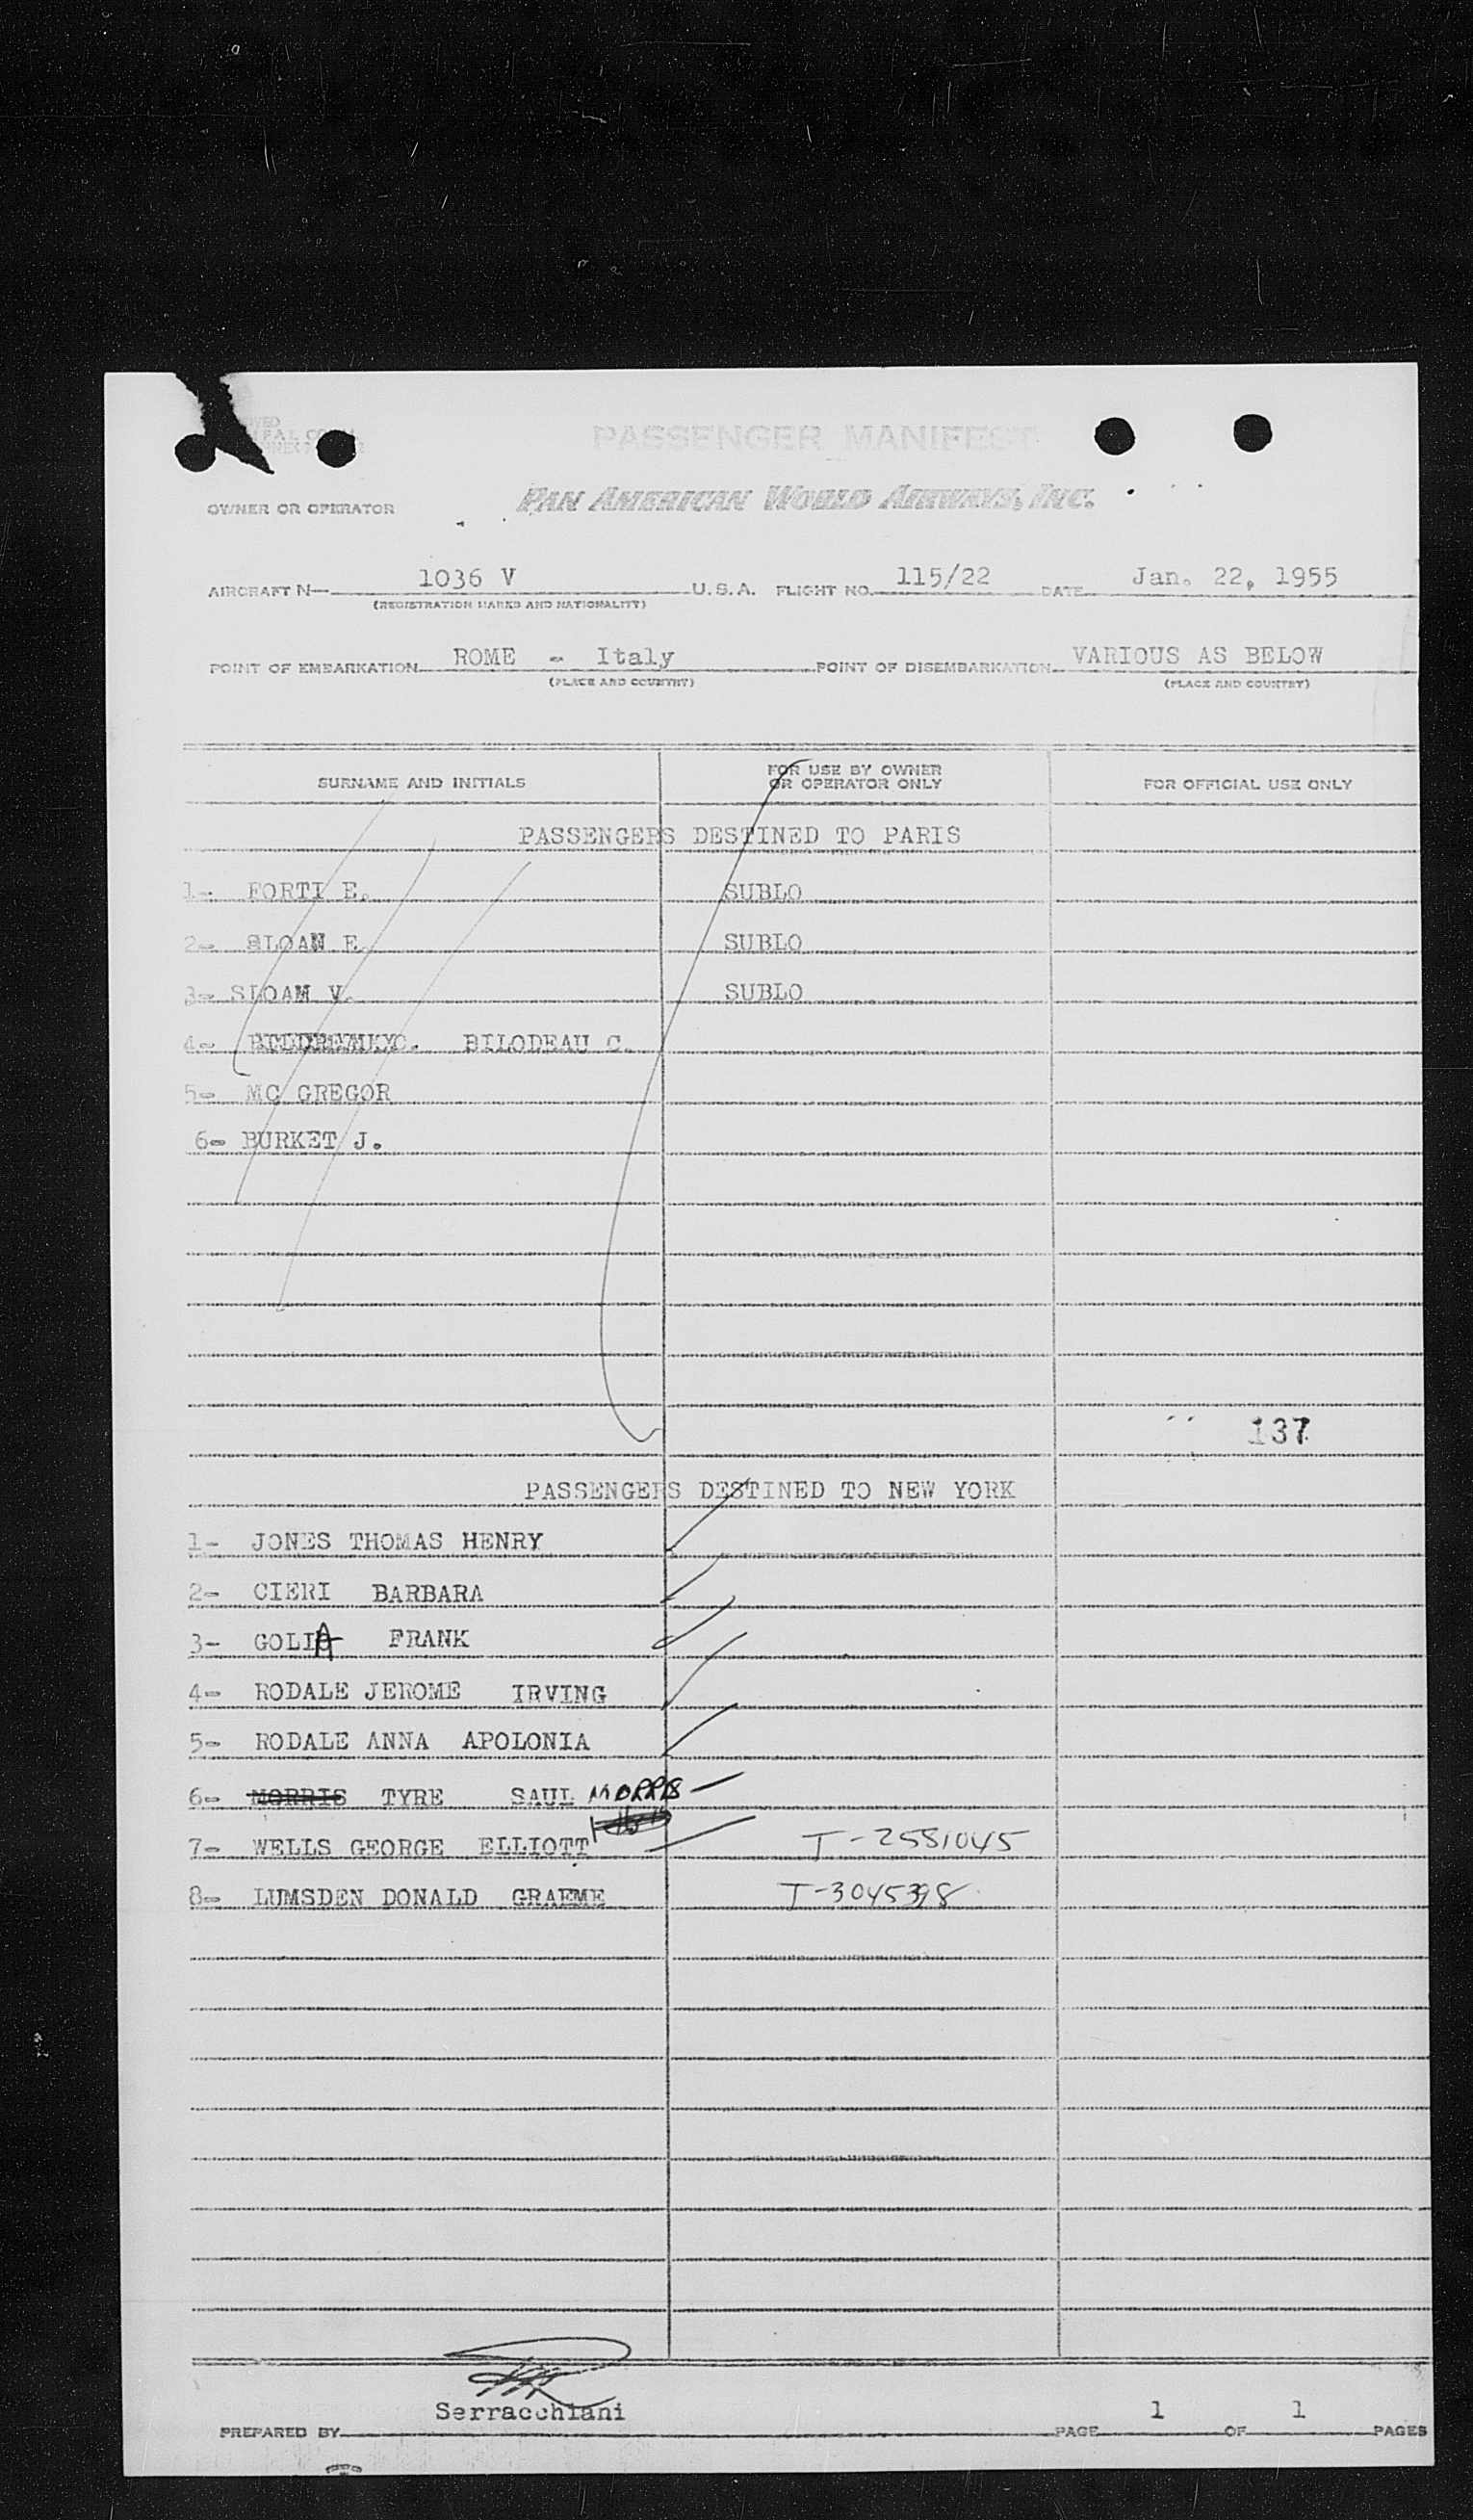 PASSENGER MANIFEST
OWNER OR OPERATOR PAN AMERICAN WORLD AIRWAYS, INC.
AIRCRAFT N— 1036 V U.S.A. FLIGHT NO. 115/22 DATE Jan. 22, 1955
(REGISTRATION MARKS AND NATIONALITY)
POINT OF EMBARKATION ROME - Italy POINT OF DISEMBARKATION VARIOUS AS BELOW
(PLACE AND COUNTRY) (PLACE AND COUNTRY)
SURNAME AND INITIALS FOR USE BY OWNER OR OPERATOR ONLY FOR OFFICIAL USE ONLY
PASSENGERS DESTINED TO PARIS
1- FORTI E. SUBLO
2- SLOAN E. SUBLO
3- SLOAM V. SUBLO
4- BILODEAU C.
5- MC GREGOR
6- BURKET J.
137
PASSENGERS DESTINED TO NEW YORK
1- JONES THOMAS HENRY
2- CIERI BARBARA
3- GOLIA FRANK
4- RODALE JEROME IRVING
5- RODALE ANNA APOLONIA
6- MORRIS TYRE SAUL MORRIS
7- WELLS GEORGE ELLIOTT T-2581045
8- LUMSDEN DONALD GRAEME T-3045398
Serracchiani
PREPARED BY PAGE 1 OF 1 PAGES